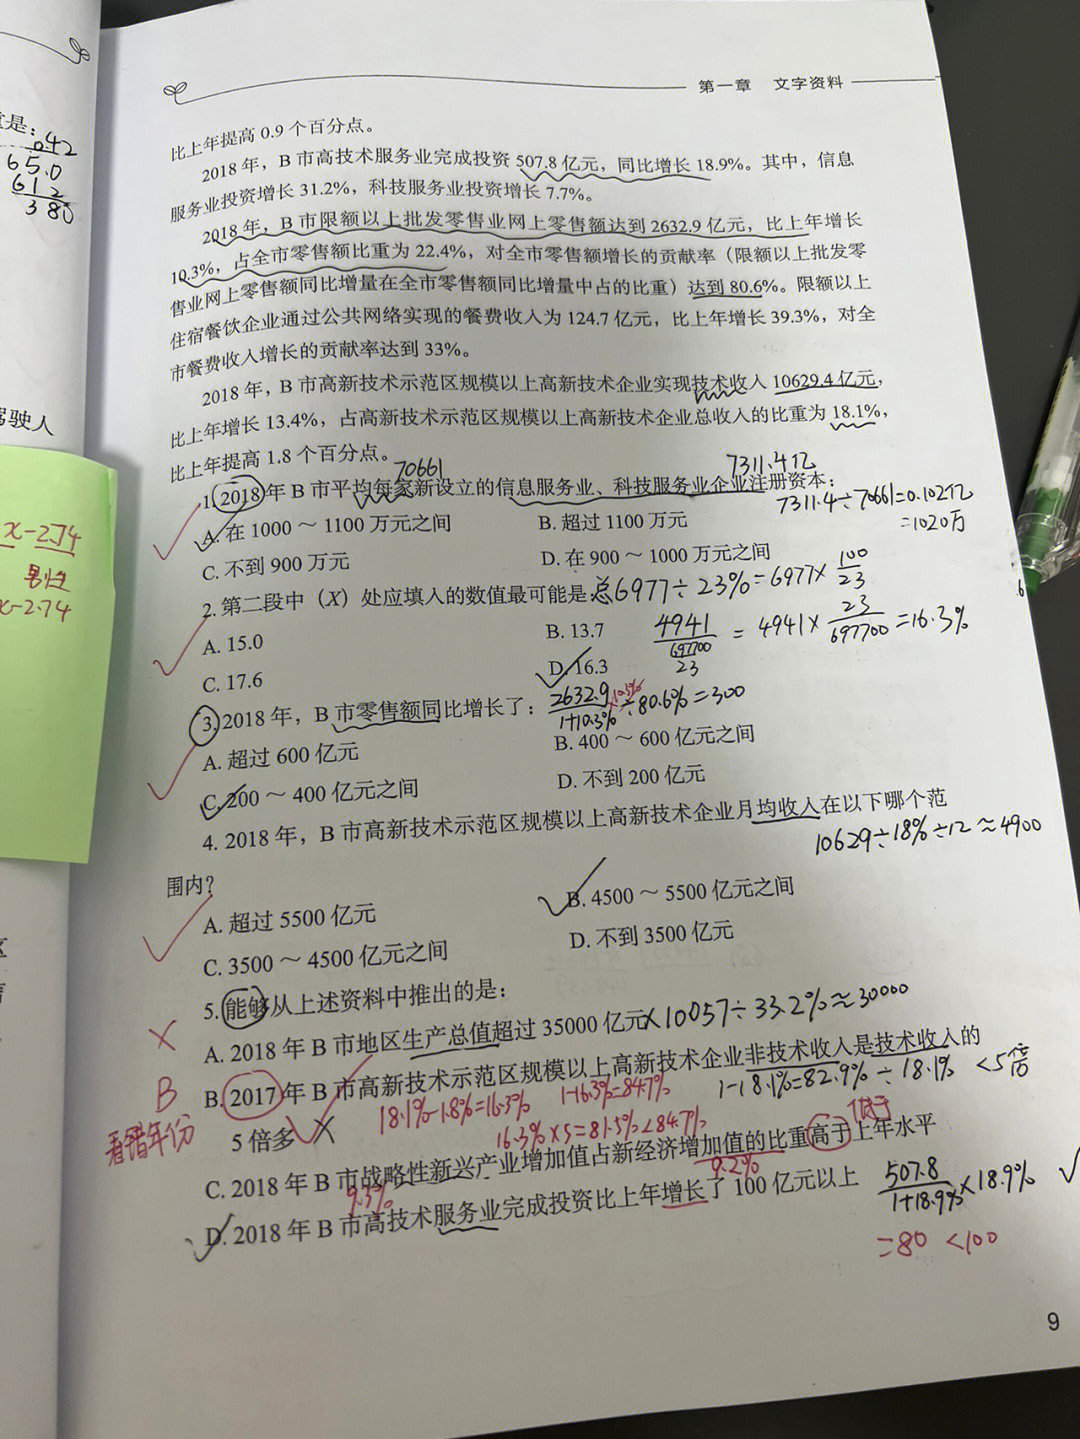 第一章 文字资料
比上年提高 0.9 个百分点。
2018 年，B 市高技术服务业完成投资 507.8 亿元，同比增长 18.9%。其中，信息
服务业投资增长 31.2%，科技服务业投资增长 7.7%。
2018 年，B 市限额以上批发零售业网上零售额达到 2632.9 亿元，比上年增长
10.3%，占全市零售额比重为 22.4%，对全市零售额增长的贡献率（限额以上批发零
售业网上零售额同比增量在全市零售额同比增量中占的比重）达到 80.6%。限额以上
住宿餐饮企业通过公共网络实现的餐费收入为 124.7 亿元，比上年增长 39.3%，对全
市餐费收入增长的贡献率达到 33%。
2018 年，B 市高新技术示范区规模以上高新技术企业实现技术收入 10629.4 亿元，
比上年增长 13.4%，占高新技术示范区规模以上高新技术企业总收入的比重为 18.1%，
比上年提高 1.8 个百分点。
70661
7311.4亿
1. 2018 年 B 市平均每家新设立的信息服务业、科技服务业企业注册资本：
7311.4÷70661=0.102亿
=1020万
A. 在 1000 ～ 1100 万元之间
B. 超过 1100 万元
C. 不到 900 万元
D. 在 900 ～ 1000 万元之间
2. 第二段中（X）处应填入的数值最可能是
总6977÷23%=6977×100/23
A. 15.0
B. 13.7
4941/(697700/23) = 4941×23/697700=16.3%
C. 17.6
D. 16.3
3. 2018 年，B 市零售额同比增长了：
2632.9/1+10.3%×10.3%÷80.6%=300
A. 超过 600 亿元
B. 400 ～ 600 亿元之间
C. 200 ～ 400 亿元之间
D. 不到 200 亿元
4. 2018 年，B 市高新技术示范区规模以上高新技术企业月均收入在以下哪个范
10629÷18%÷12≈4900
围内？
A. 超过 5500 亿元
B. 4500 ～ 5500 亿元之间
C. 3500 ～ 4500 亿元之间
D. 不到 3500 亿元
5. 能够从上述资料中推出的是：
A. 2018 年 B 市地区生产总值超过 35000 亿元
×10057÷33.2%≈30000
B. 2017 年 B 市高新技术示范区规模以上高新技术企业非技术收入是技术收入的
1-18.1%=82.9%÷18.1% <5倍
5 倍多
18.1%-1.8%=16.3% 1-16.3%=84.7%
16.3%×5=81.5%<84.7%
B
看错年份
低于
C. 2018 年 B 市战略性新兴产业增加值占新经济增加值的比重高于上年水平
9.3%
9.2%
D. 2018 年 B 市高技术服务业完成投资比上年增长了 100 亿元以上
507.8/1+18.9%×18.9%
=80 <100
9
是：
0.42
65.0
612
380
驾驶人
x-2.74
男性
x-2.74